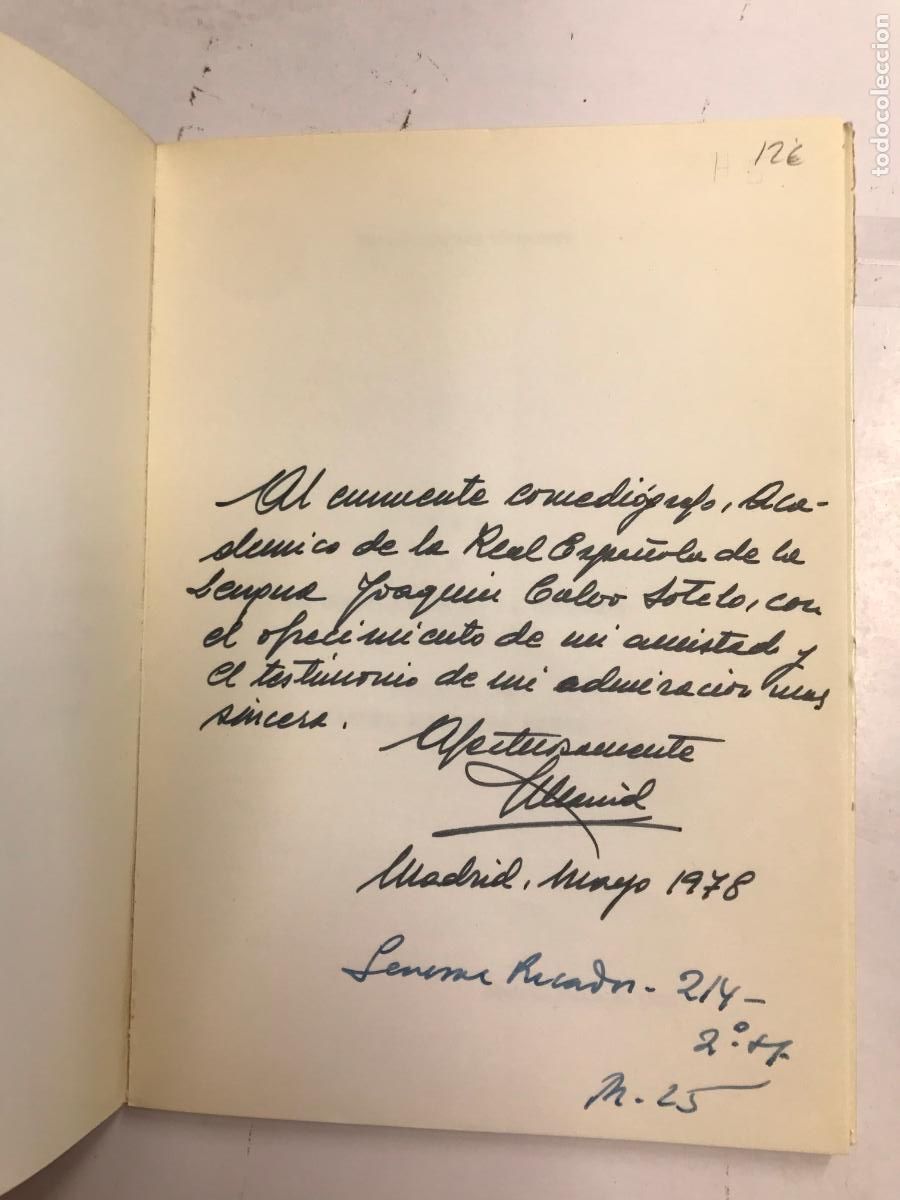 12€
Al eminente comediógrafo, Aca-
demico de la Real Española de la
Lengua Joaquin Calvo Sotelo, con
el ofrecimiento de mi amistad y
el testimonio de mi admiracion mas
sincera.
Afectuosamente
Madrid, Mayo 1978
General Ricardos - 214 -
2º
M - 25
todocoleccion